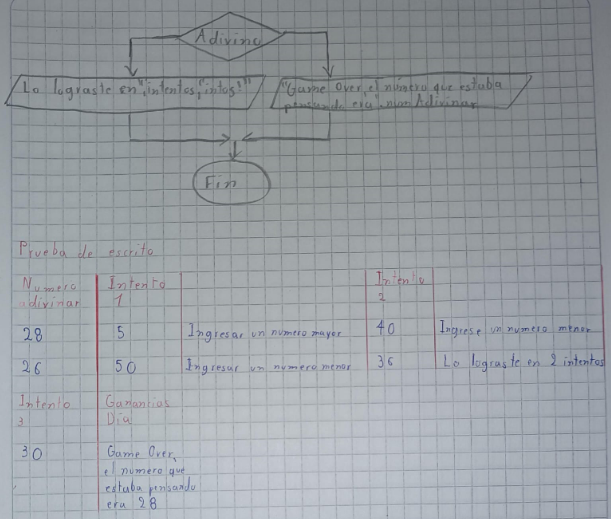 Adivino
Lo lograste en", intentos, "intos!"
"Game Over, el número que estaba
pensando era", numAdivinar
Fin
Prueba de escrito
Numero adivinar
Intento 1
Intento 2
28 5 Ingresar un numero mayor 40 Ingrese un numero menor
26 50 Ingresar un numero menor 36 Lo lograste en 2 intentos
Intento 3
Ganancias Dia
30 Game Over,
el numero que
estaba pensando
era 28